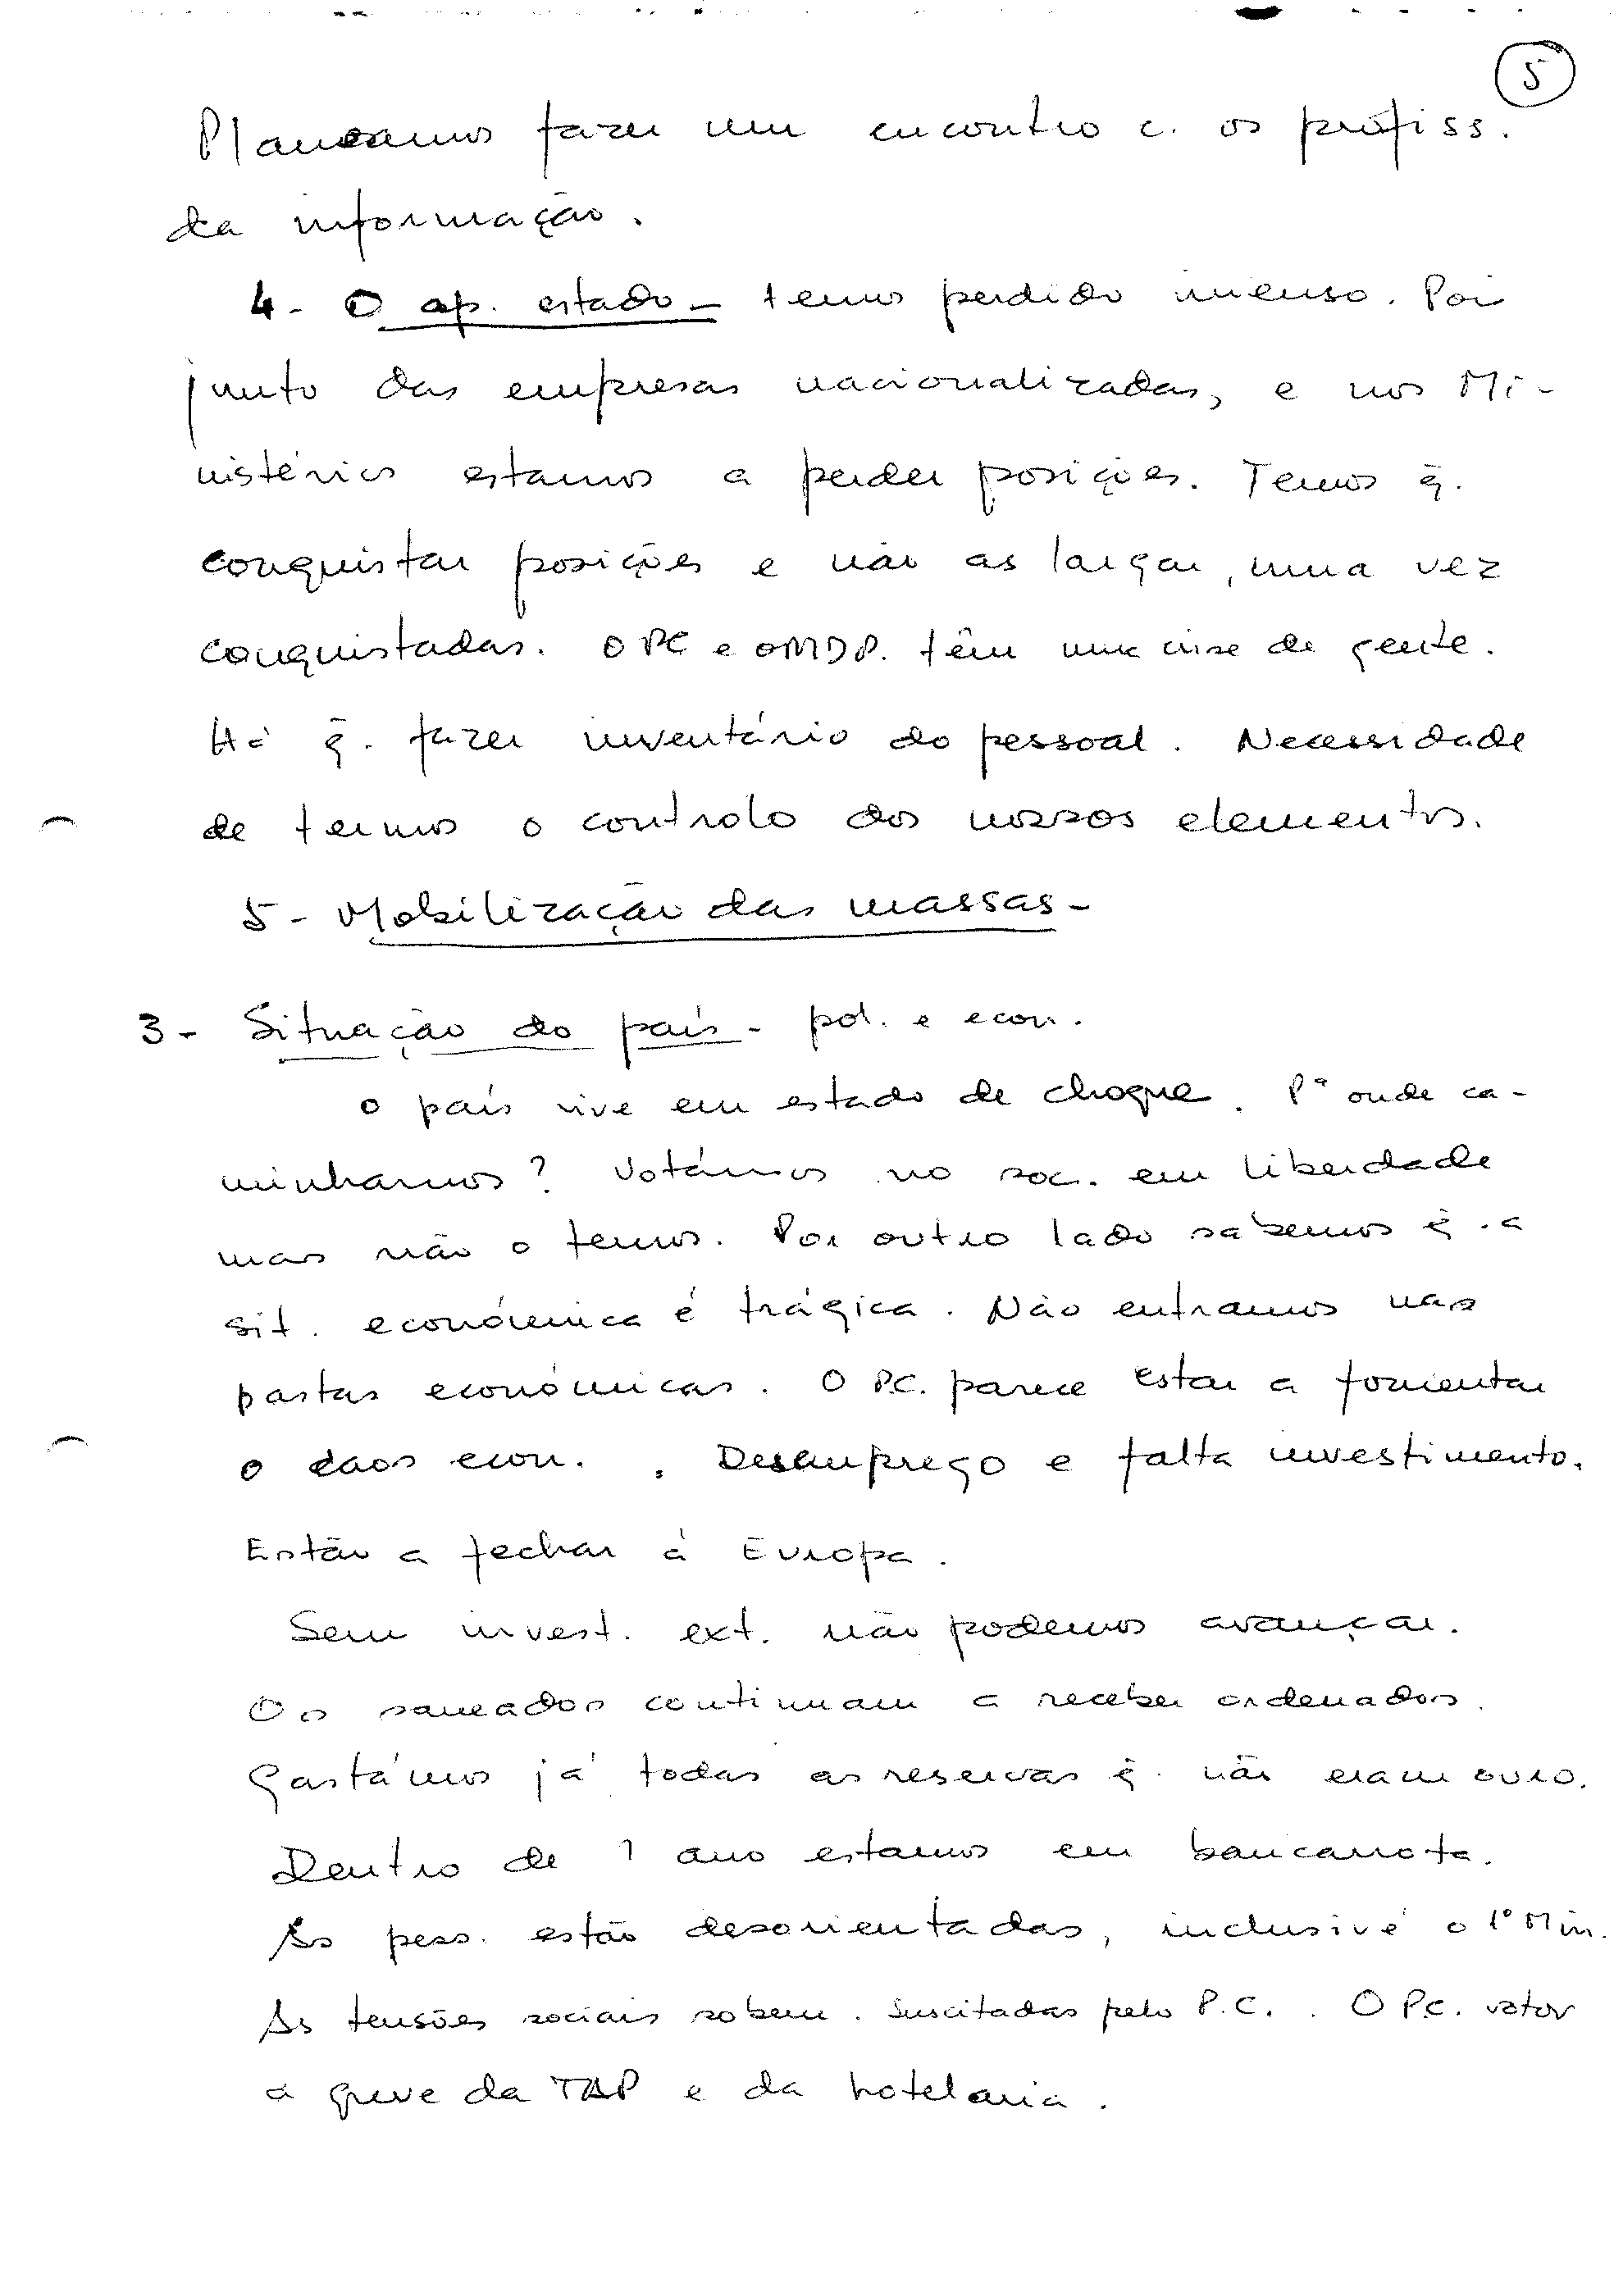 5
Planeamos fazer um encontro c. os profiss.
da informação.
4 - O ap. estado - temos perdido imenso. Por
junto das empresas nacionalizadas, e nos Mi-
nistérios estamos a perder posições. Temos q̃.
conquistar posições e não as largar, uma vez
conquistadas. O PC e o MDP. têm uma crise de gente.
Há q̃. fazer inventário do pessoal. Necessidade
de termos o controlo dos nossos elementos.
5 - Mobilização das massas -
3 - Situação do país - pol. e econ.
O país vive em estado de choque. Pª onde ca-
minhamos? Votámos no soc. em liberdade
mas não o temos. Por outro lado sabemos q̃. a
sit. económica é trágica. Não entramos nas
pastas económicas. O P.C. parece estar a fomentar
o caos econ. . Desemprego e falta investimento.
Estão a fechar à Europa.
Sem invest. ext. não podemos avançar.
Os saneados continuam a receber ordenados.
Gastámos já todas as reservas q̃. não eram ouro.
Dentro de 1 ano estamos em bancarrota.
As pess. estão desorientadas, inclusivé o 1º Min.
As tensões sociais sobem. Suscitadas pelo P.C. . O P.C. votou
a greve da TAP e da hotelaria.